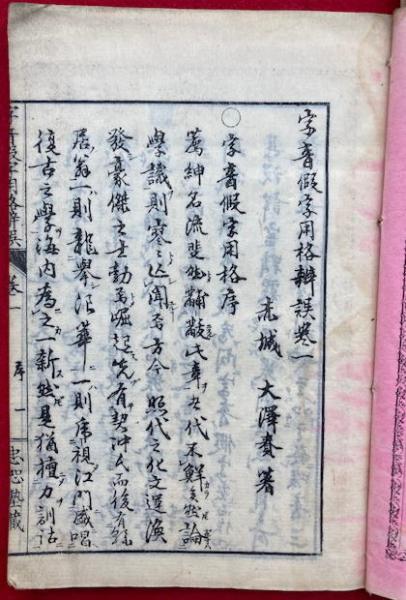 字音假字用格辨誤卷一
赤城 大澤賚著
○字音假字用格序
萬紳名流斐然黼黻其章者代不鮮矣然論
學識則寥々乏聞焉方今熙代之化文運渙
發豪傑之士勃焉崛起先有契沖氏而後有鈴
居翁一則龍舉浪華一則虎視江門盛唱
復古之學海內為之一新然是猶擅力訓詁
字音假字用格辨誤 卷一 序 一